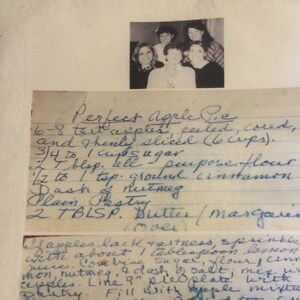 Perfect Apple Pie
6-8 tart apples, peeled, cored,
and thinly sliced (6 cups).
3/4 to 1 cup sugar
2 Tblsp. all-purpose flour
1/2 to 1 tsp. ground cinnamon
Dash of nutmeg
Plain Pastry
2 TBLSP. Butter/Margari
(over)
If apples lack tartness, sprinkle
with about 1 tablespoon lemon
juice. Combine sugar, flour, cinna
mon, nutmeg, & dash of salt; mix w
apples. Line 9" pie plate with
pastry. Fill with apple mixt